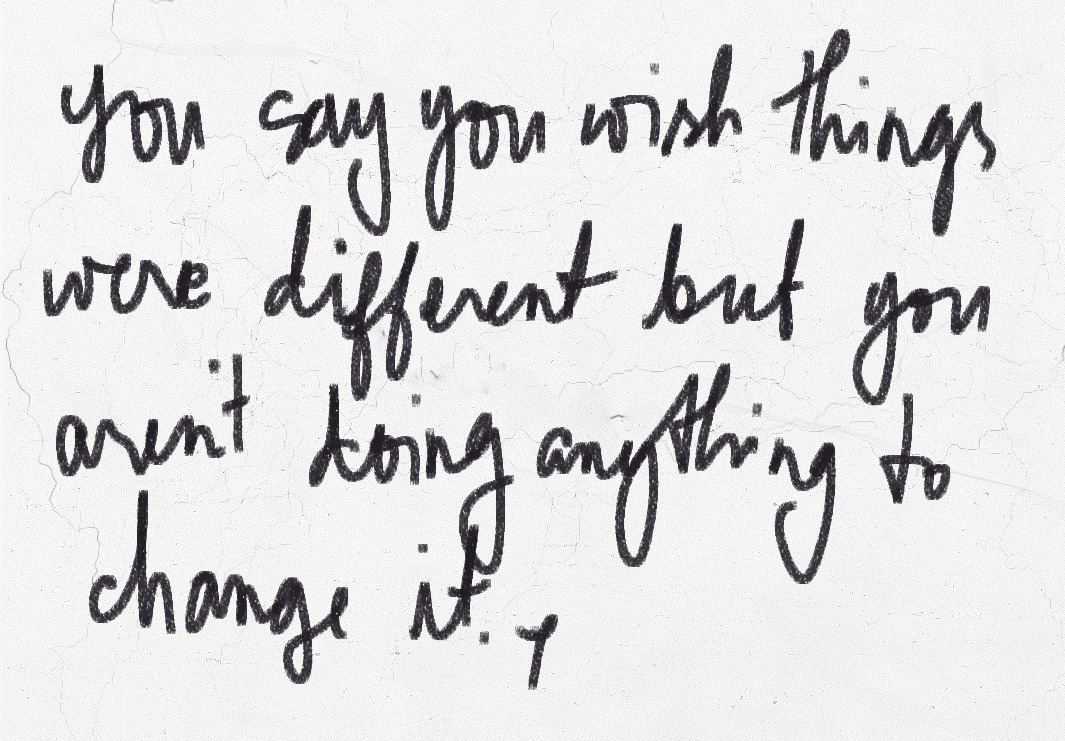 you say you wish things
were different but you
aren't doing anything to
change it. y